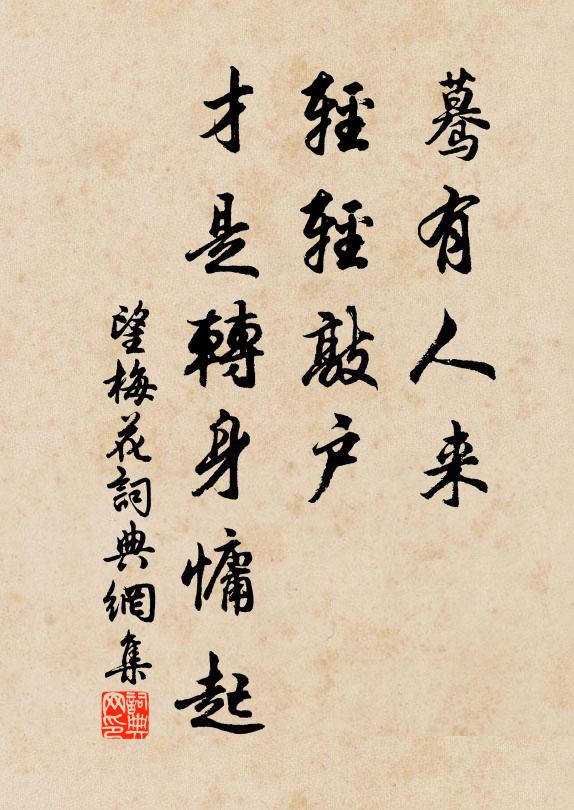 蓦有人来
輕輕敲户
才是轉身慵起
望梅花詞典網集
詞典
网印